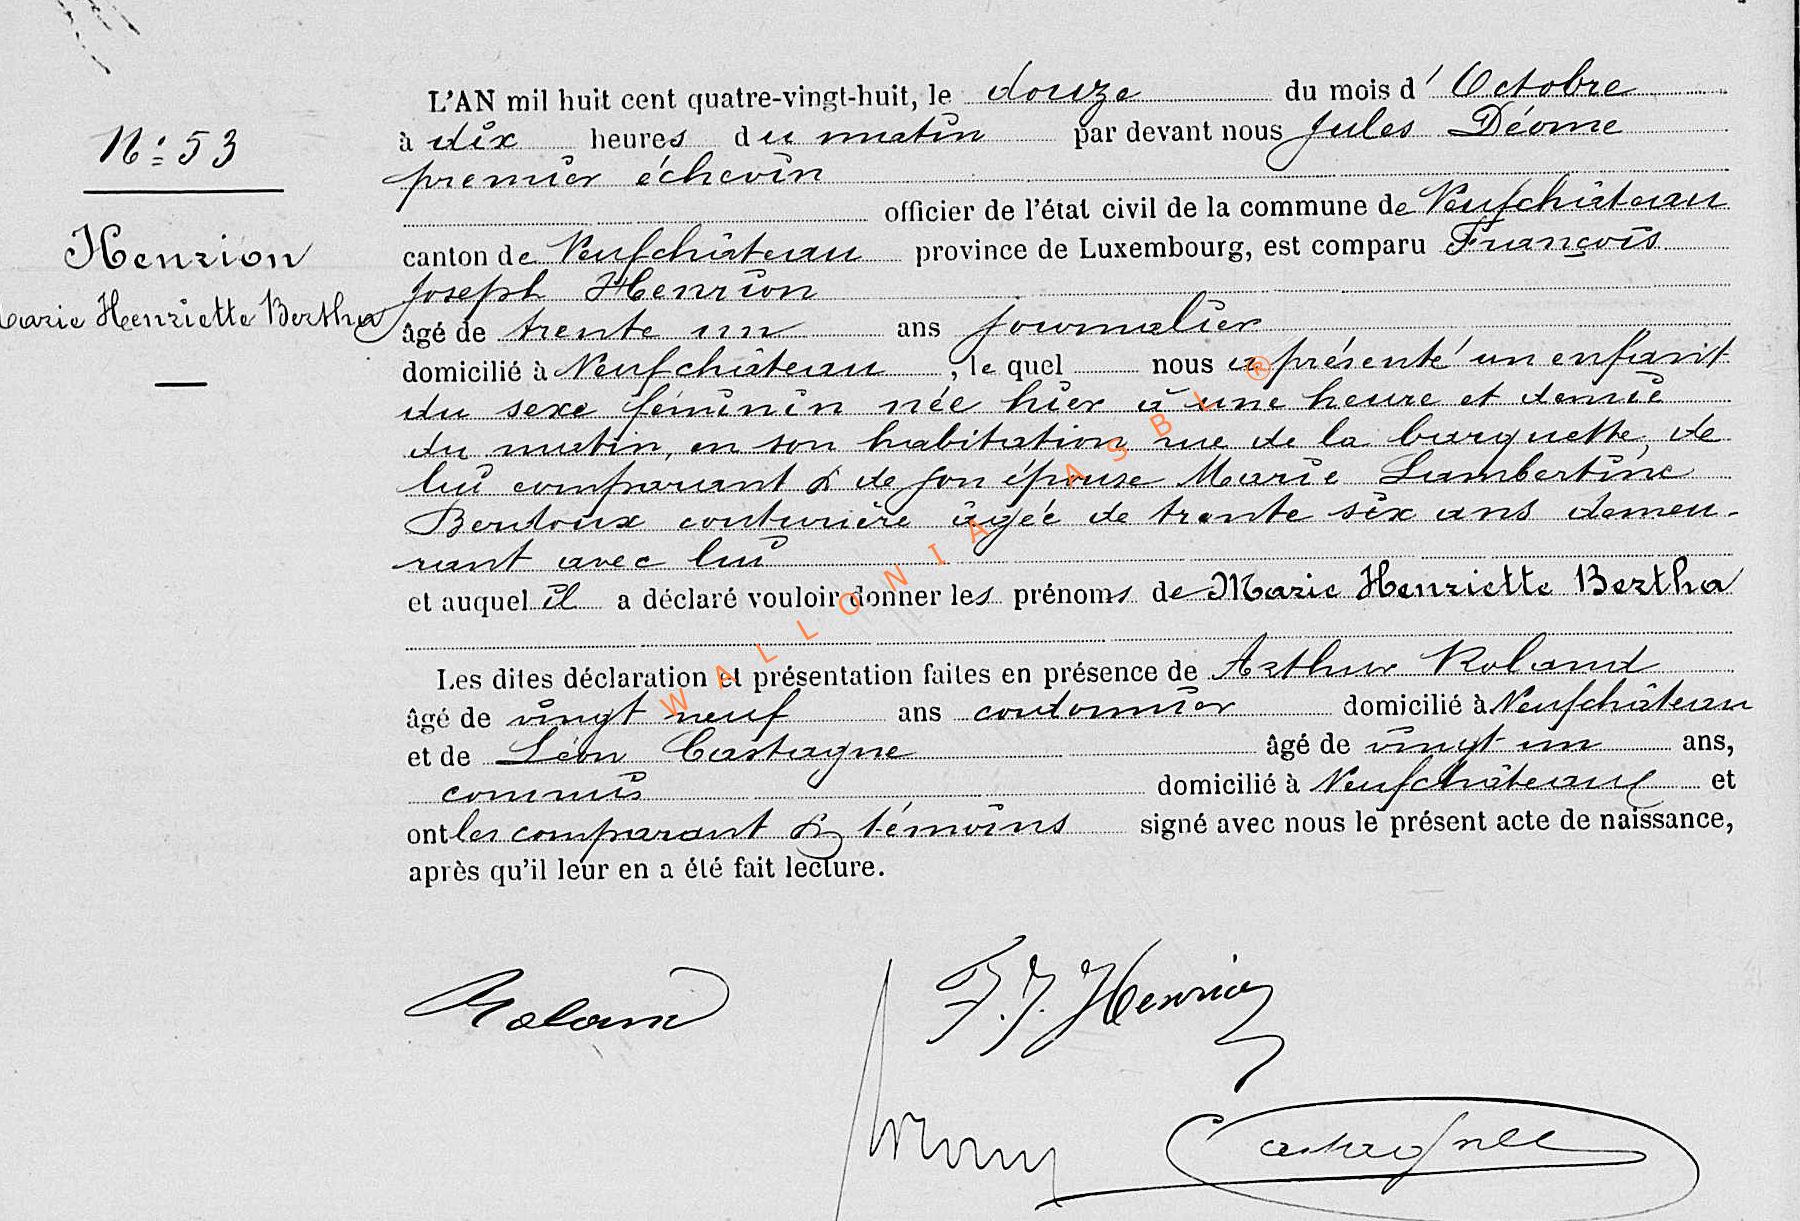 N° 53
Henrion
Marie Henriette Bertha
L'AN mil huit cent quatre-vingt-huit, le douze du mois d' Octobre
à dix heures du matin par devant nous Jules Déome
premier échevin
officier de l'état civil de la commune de Neufchâteau
canton de Neufchâteau province de Luxembourg, est comparu François
Joseph Henrion
âgé de trente un ans journalier
domicilié à Neufchâteau, lequel nous a présenté un enfant
du sexe féminin née hier à une heure et demie
du matin, en son habitation rue de la barquette, de
lui comparant & de son épouse Marie Lambertine
couturière âgée de trente six ans demeu-
rant avec lui
et auquel il a déclaré vouloir donner les prénoms de Marie Henriette Bertha
Les dites déclaration et présentation faites en présence de Arthur Roland
âgé de vingt neuf ans cordonnier domicilié à Neufchâteau
et de Léon Castagne âgé de vingt un ans,
commis domicilié à Neufchâteau et
ont les comparant & témoins signé avec nous le présent acte de naissance,
après qu'il leur en a été fait lecture.
Roland
F. J. Henrion
Castagne
WALLONIA ASBL ®